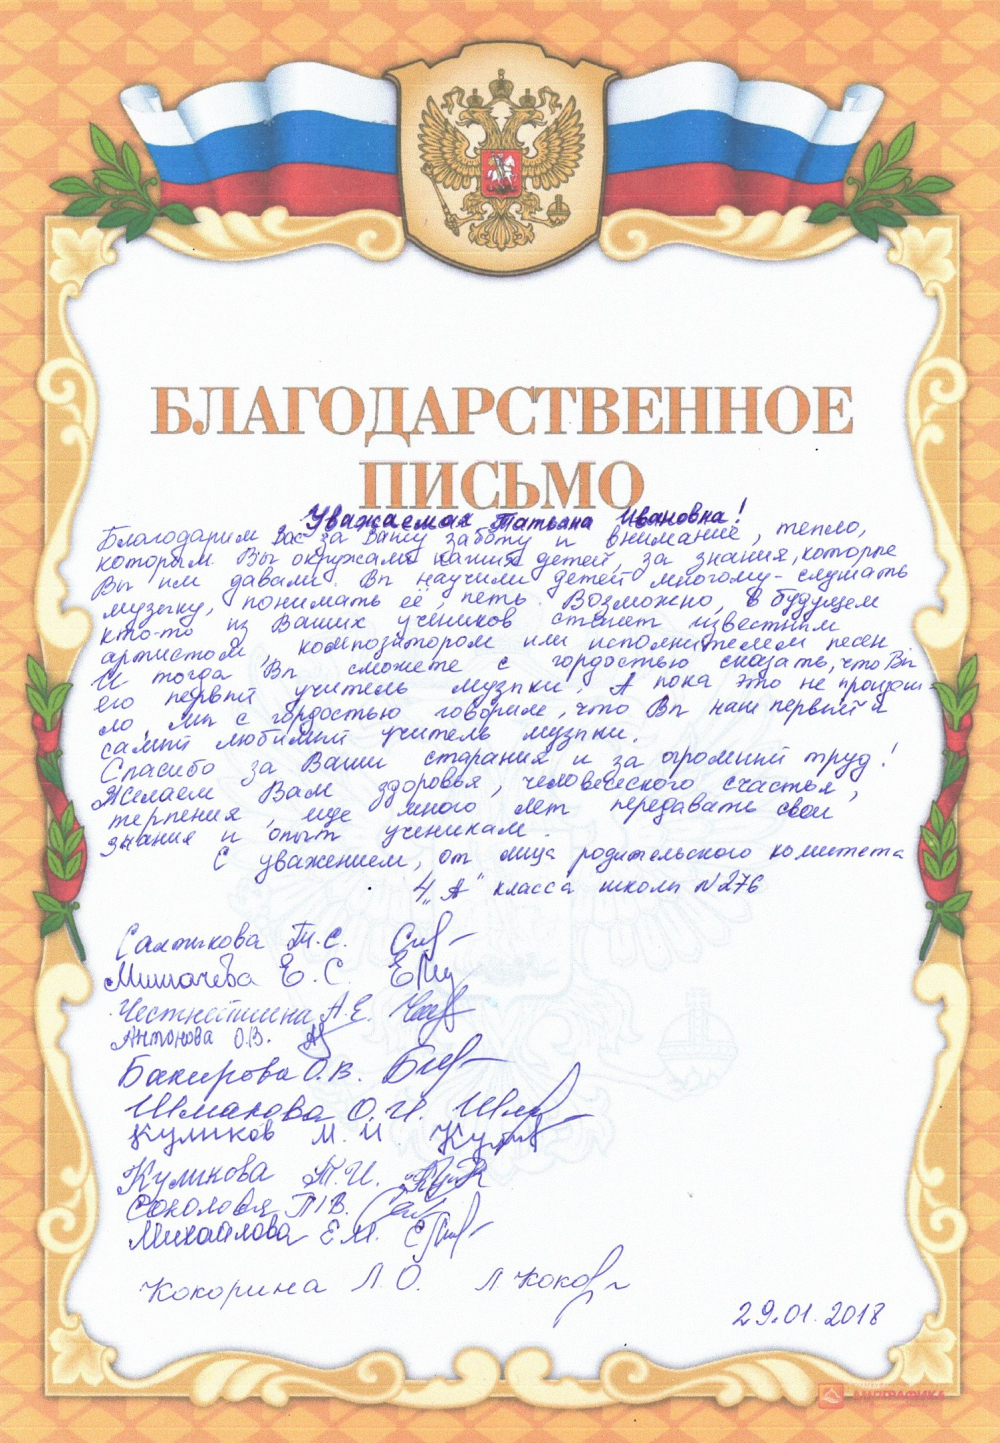 БЛАГОДАРСТВЕННОЕ
ПИСЬМО
Уважаемая Татьяна Ивановна!
Благодарим Вас за Вашу заботу и внимание, тепло,
которым Вы окружали наших детей, за знания, которые
Вы им давали. Вы научили детей многому - слушать
музыку, понимать её, петь. Возможно, в будущем
кто-то из Ваших учеников станет известным
артистом, композитором или исполнителем песен.
И тогда Вы сможете с гордостью сказать, что Вы
его первый учитель музыки. А пока это не произош-
ло, мы с гордостью говорим, что Вы наш первый и
самый любимый учитель музыки.
Спасибо за Ваши старания и за огромный труд!
Желаем Вам здоровья, человеческого счастья,
терпения, еще много лет передавать свои
знания и опыт ученикам.
С уважением, от лица родительского комитета
4 „А" класса школы №276
Салтыкова Т.С.
Мишачёва Е.С.
Честнейшина А.Е.
Антонова О.В.
Бакирова О.В.
Шмакова О.И.
Куликов М.И
Куликова Т.И.
Соколова П.В.
Михайлова Е.М.
Кокорина Л.О.
29.01.2018